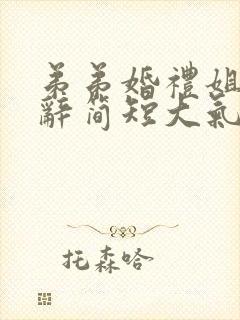 弟弟婚禮姐
辭简短大氣
托森哈